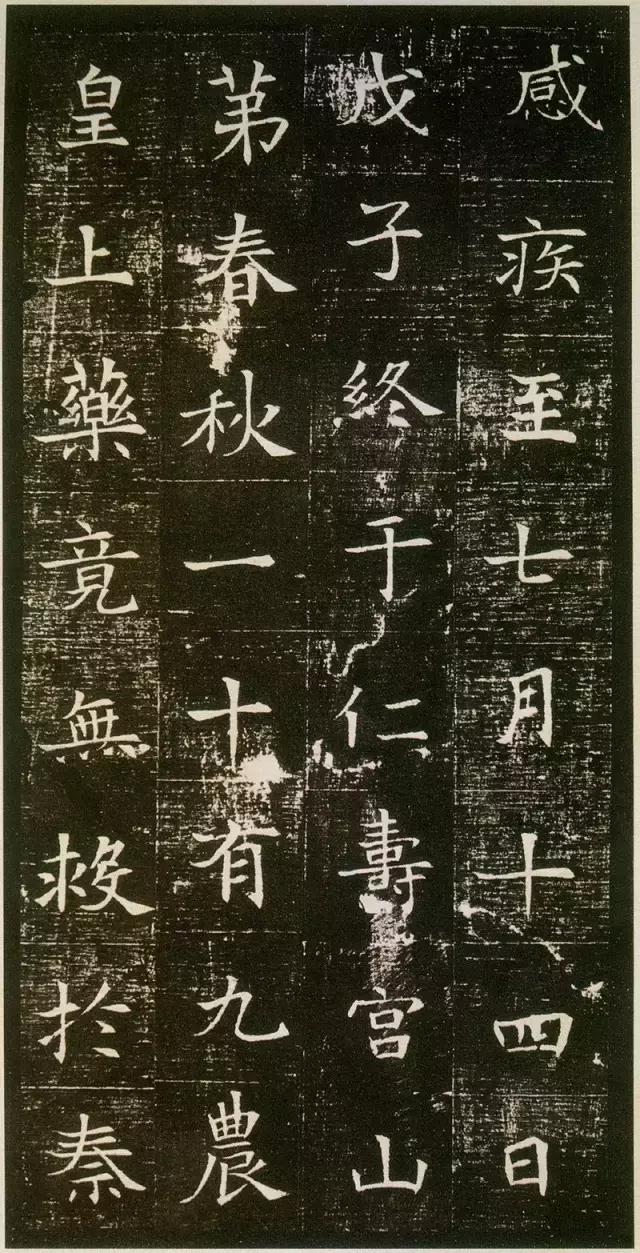 感疾至七月十四日
戊子終于仁壽宮山
苐春秋一十有九農
皇上藥竟無救於秦